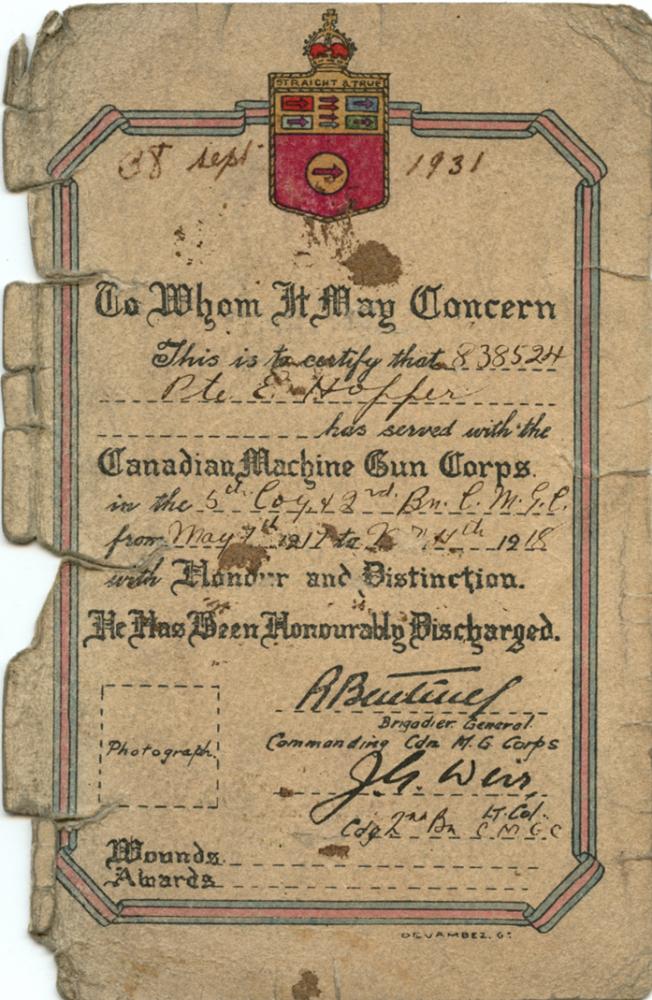 STRAIGHT & TRUE
sept 1931
To Whom It May Concern
This is to certify that 838524
Pte E Hopper
has served with the
Canadian Machine Gun Corps.
in the 5th Coy & 2nd Bn. C. M. G. C.
from May 7th 1917 to 4th 1918
with Honour and Distinction.
He Has Been Honourably Discharged.
Brigadier General.
Commanding Cdn M. G Corps
Photograph.
J. G. Weir
Lt. Col.
Cdg 2nd Bn C M G C
Wounds
Awards
DEVAMBEZ. Gr